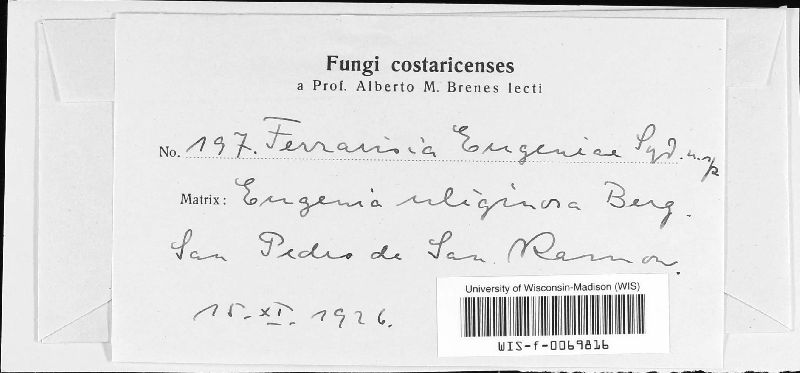 Fungi costaricenses
a Prof. Alberto M. Brenes lecti
No. 197. Ferrarisia Eugeniae Syd. n. sp
Matrix: Eugenia uliginosa Berg.
San Pedro de San Ramon.
15. XI. 1926.
University of Wisconsin-Madison (WIS)
WIS-f-0069816